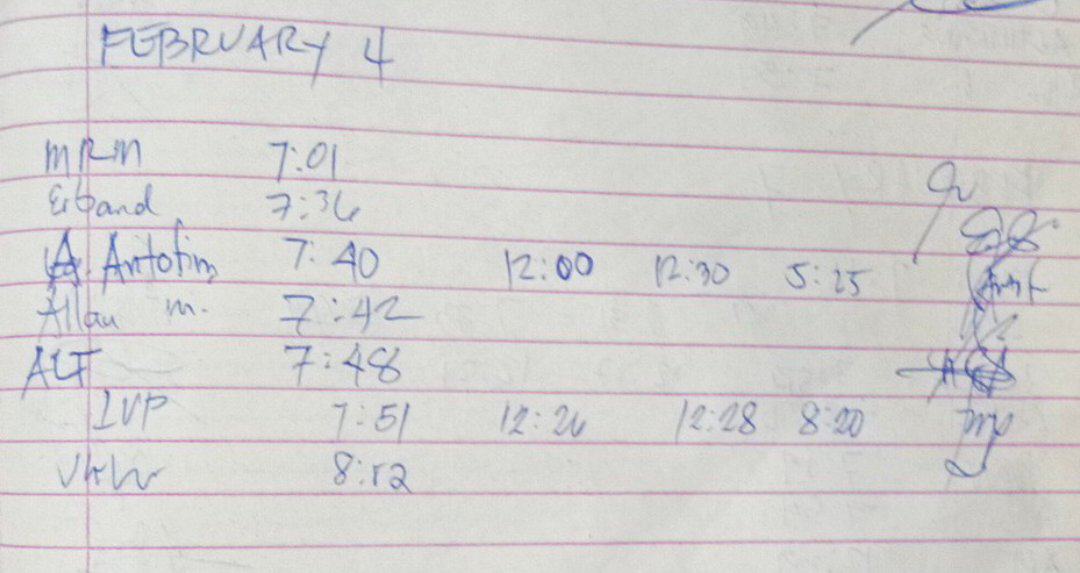 FEBRUARY 4
MRM 7:01
7:36
A. Antofina 7:40 12:00 12:30 5:25
Allan m. 7:42
ALF 7:48
LVP 7:51 12:26 12:28 8:20
8:12